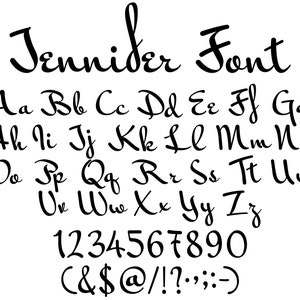 Jennifer Font
Aa Bb Cc Dd Ee Ff G
Hh Ii Jj Kk Ll Mm N
Oo Pp Qq Rr Ss Tt U
Vv Ww Xx Yy Zz
1234567890
(&$@/!?·,;:-)